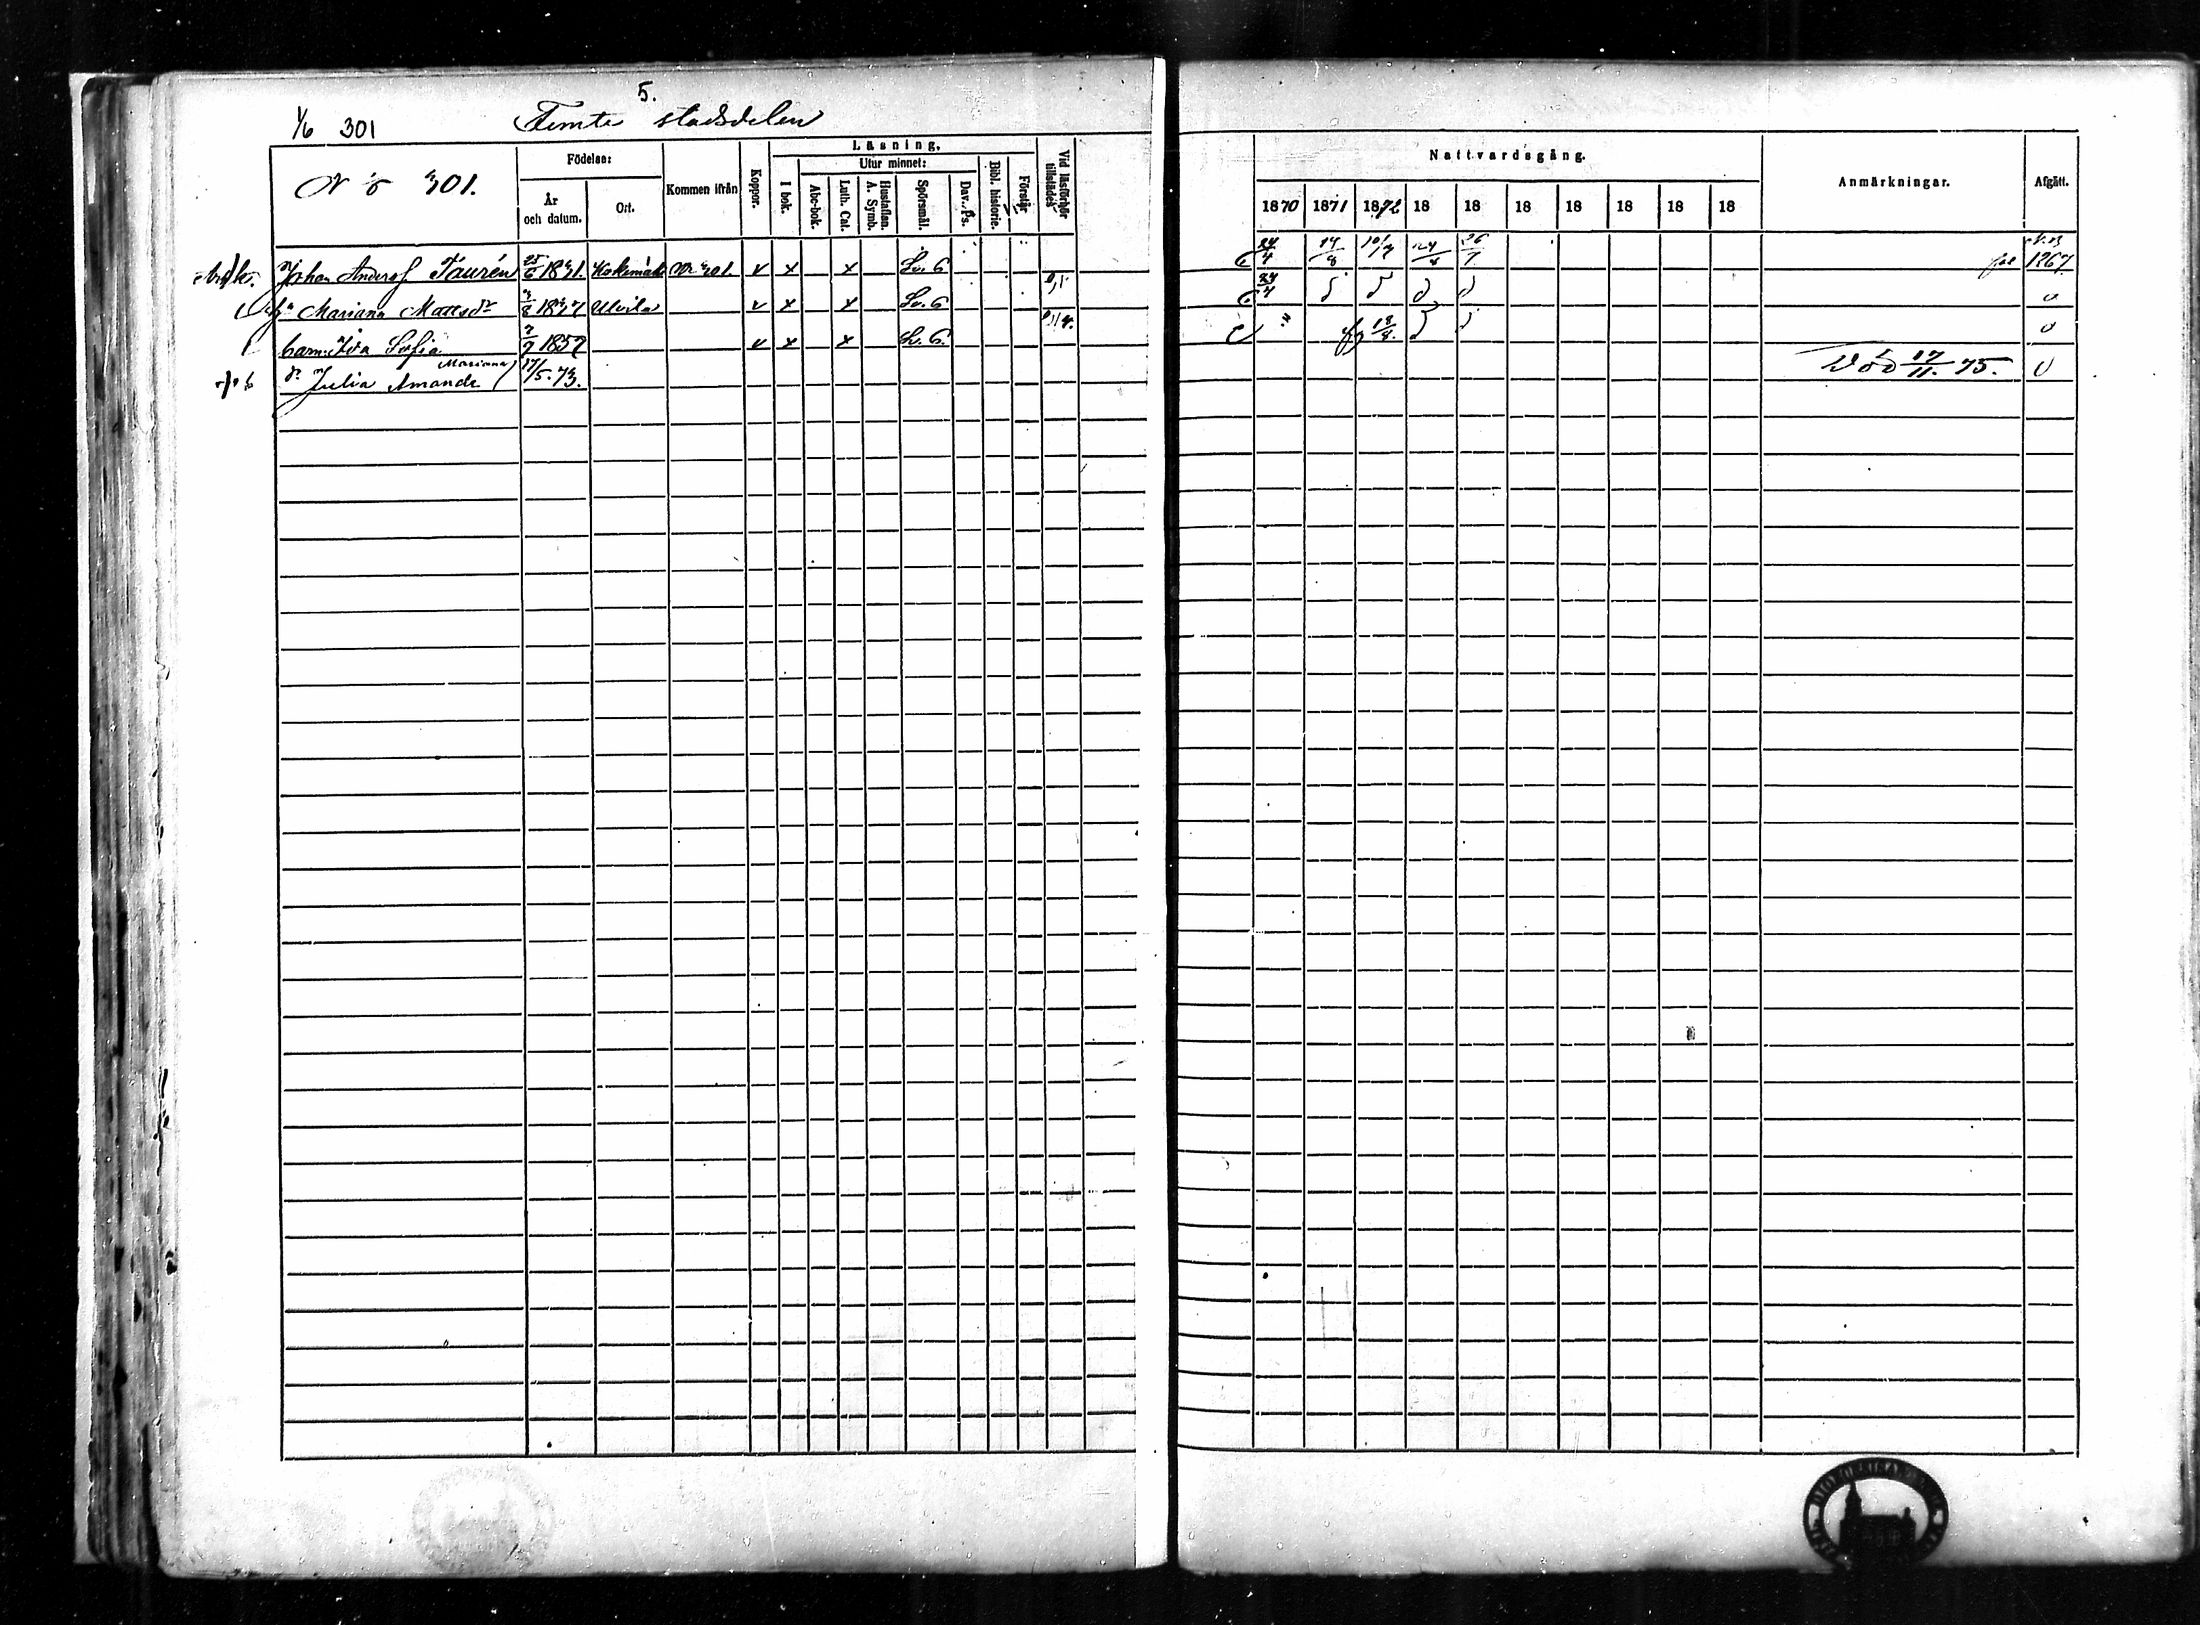 5.
1/6 301 Femte stadsdelen
N:o 301.
Födelse:
År och datum.
Ort.
Kommen ifrån
Koppor.
Läsning.
I bok.
Utur minnet:
Abc-bok.
Luth. Cat.
Hustaflan. A. Symb.
Spörsmål.
Dav. Ps.
Bibl. historie.
Förstår
Vid läsförhör tillstädes
Nattvardsgång.
1870 1871 1872 18 18 18 18 18 18 18
Anmärkningar.
Afgått.
Johan Anders S. Taurén 25/6 1831. Kokemäki N:r 301. v x x Sv. 6 24/4 14/8 24/8 26/7 fol 1267
Mariana Mattsdr 1837 Ulvila v x x Sv. 6 24/4
barn: Ida Sofia 7/7 1857 v x x Sv. 6. 18/8.
dr Julia Amanda Mariana 17/5. 73. Död 17/11. 75.